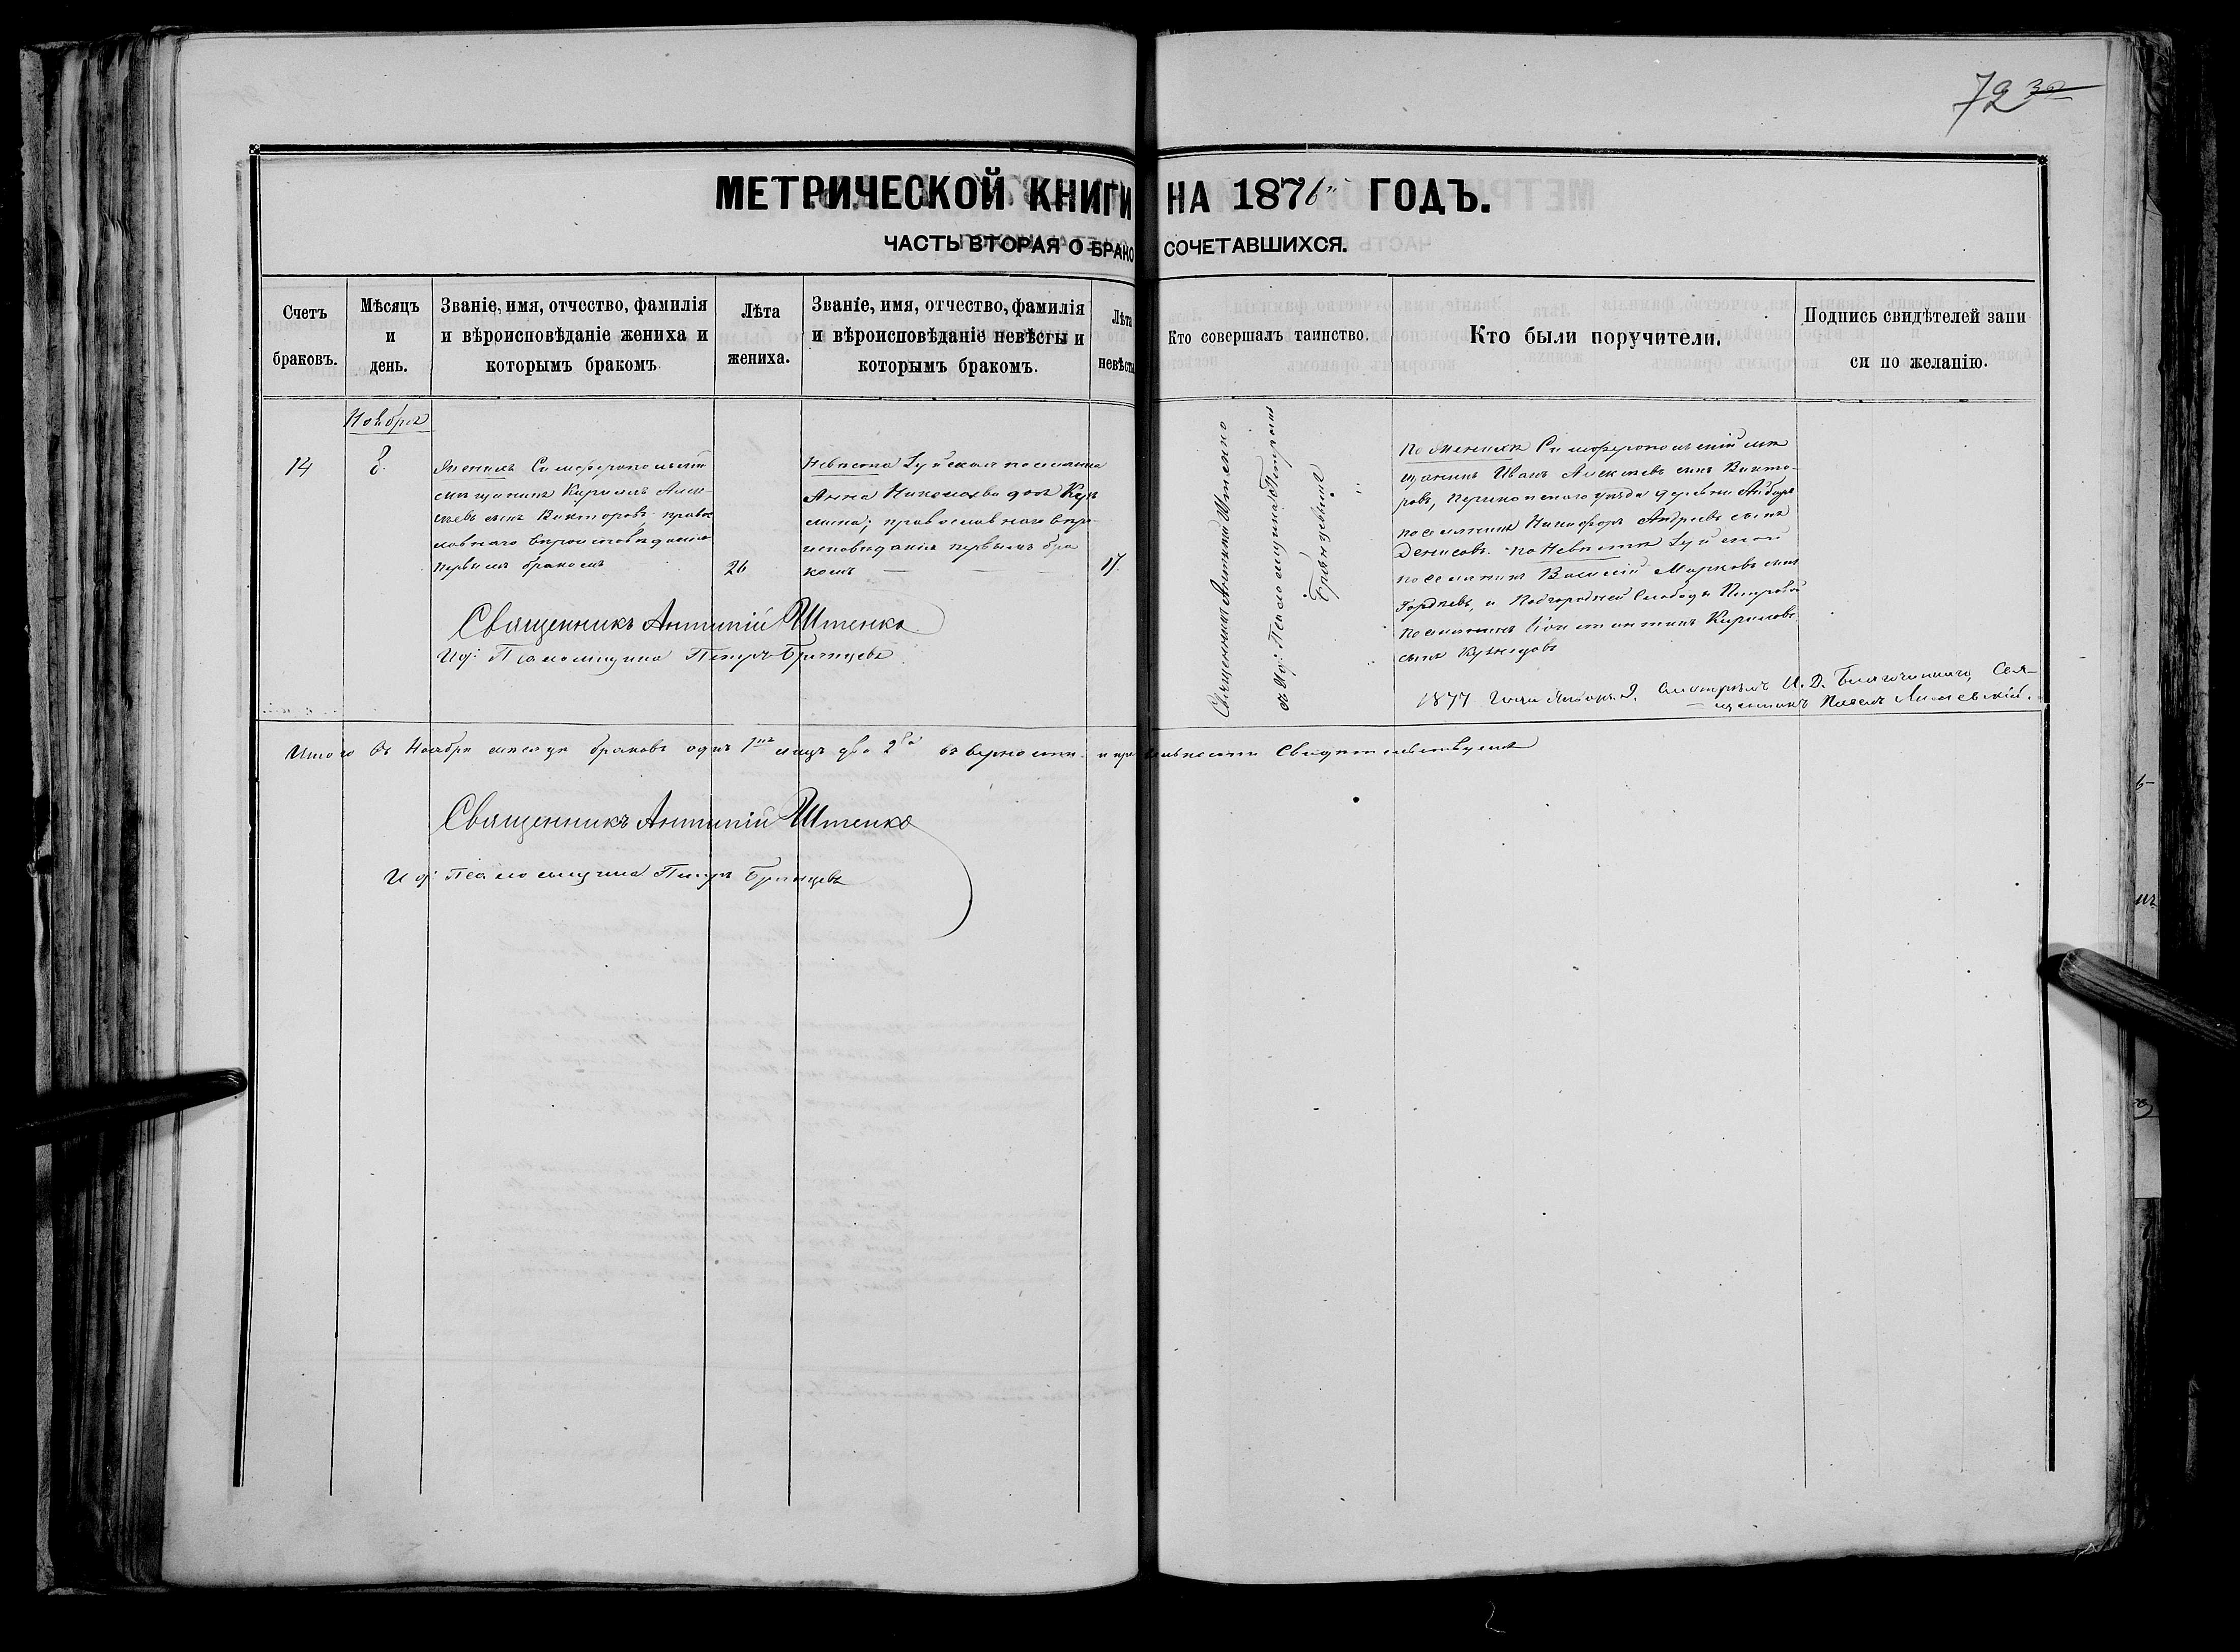 72 32
МЕТРИЧЕСКОЙ КНИГИ НА 1876 ГОДЪ.
ЧАСТЬ ВТОРАЯ О БРАКОСОЧЕТАВШИХСЯ.
Счетъ браковъ.
Мѣсяцъ и день.
Званіе, имя, отчество, фамилія
и вѣроисповѣданіе жениха и
которымъ бракомъ.
Лѣта жениха.
Званіе, имя, отчество, фамилія
и вѣроисповѣданіе невѣсты и
которымъ бракомъ.
Лѣта невѣсты
Кто совершалъ таинство.
Кто были поручители.
Подпись свидѣтелей запи
си по желанію.
Ноября
14
8.
Женихъ Симферопольскій
мѣщанинъ Кириллъ Алек-
сѣевъ сынъ Викторовъ, правос
лавнаго вѣроисповѣданія
первымъ бракомъ
26
Невѣста Зуйская поселянка
Анна Николаева дочь
православнаго вѣро-
исповѣданія первымъ бра
комъ
17.
Священникъ Антипій Штенко
съ Ид: Псаломщика Петромъ
Брянцевымъ
По женихѣ Симферопольскій мѣ
щанинъ Иванъ Алексѣевъ сынъ Викто-
ровъ, Перекопскаго уѣзда деревни Айбаръ
поселянинъ Никифоръ Андреевъ сынъ
Денисовъ. по Невѣстѣ Зуйской
поселянинъ Василій Марковъ сынъ
Гордѣевъ, и Подгородней Слободы Петровой
поселянинъ Константинъ Кириловъ
сынъ Кузнецовъ
Священникъ Антипій Штенко
Ид: Псаломщика Петръ Брянцевъ
1877 года Января 2. Смотрѣлъ И. Д. Благочиннаго, Свя-
щенникъ Павелъ
Итого въ Ноябрѣ мѣсяцѣ браковъ одинъ 1 лицъ два 2 въ вѣрности и правильности свидѣтельствуемъ
Священникъ Антипій Штенко
Ид: Псаломщика Петръ Брянцевъ